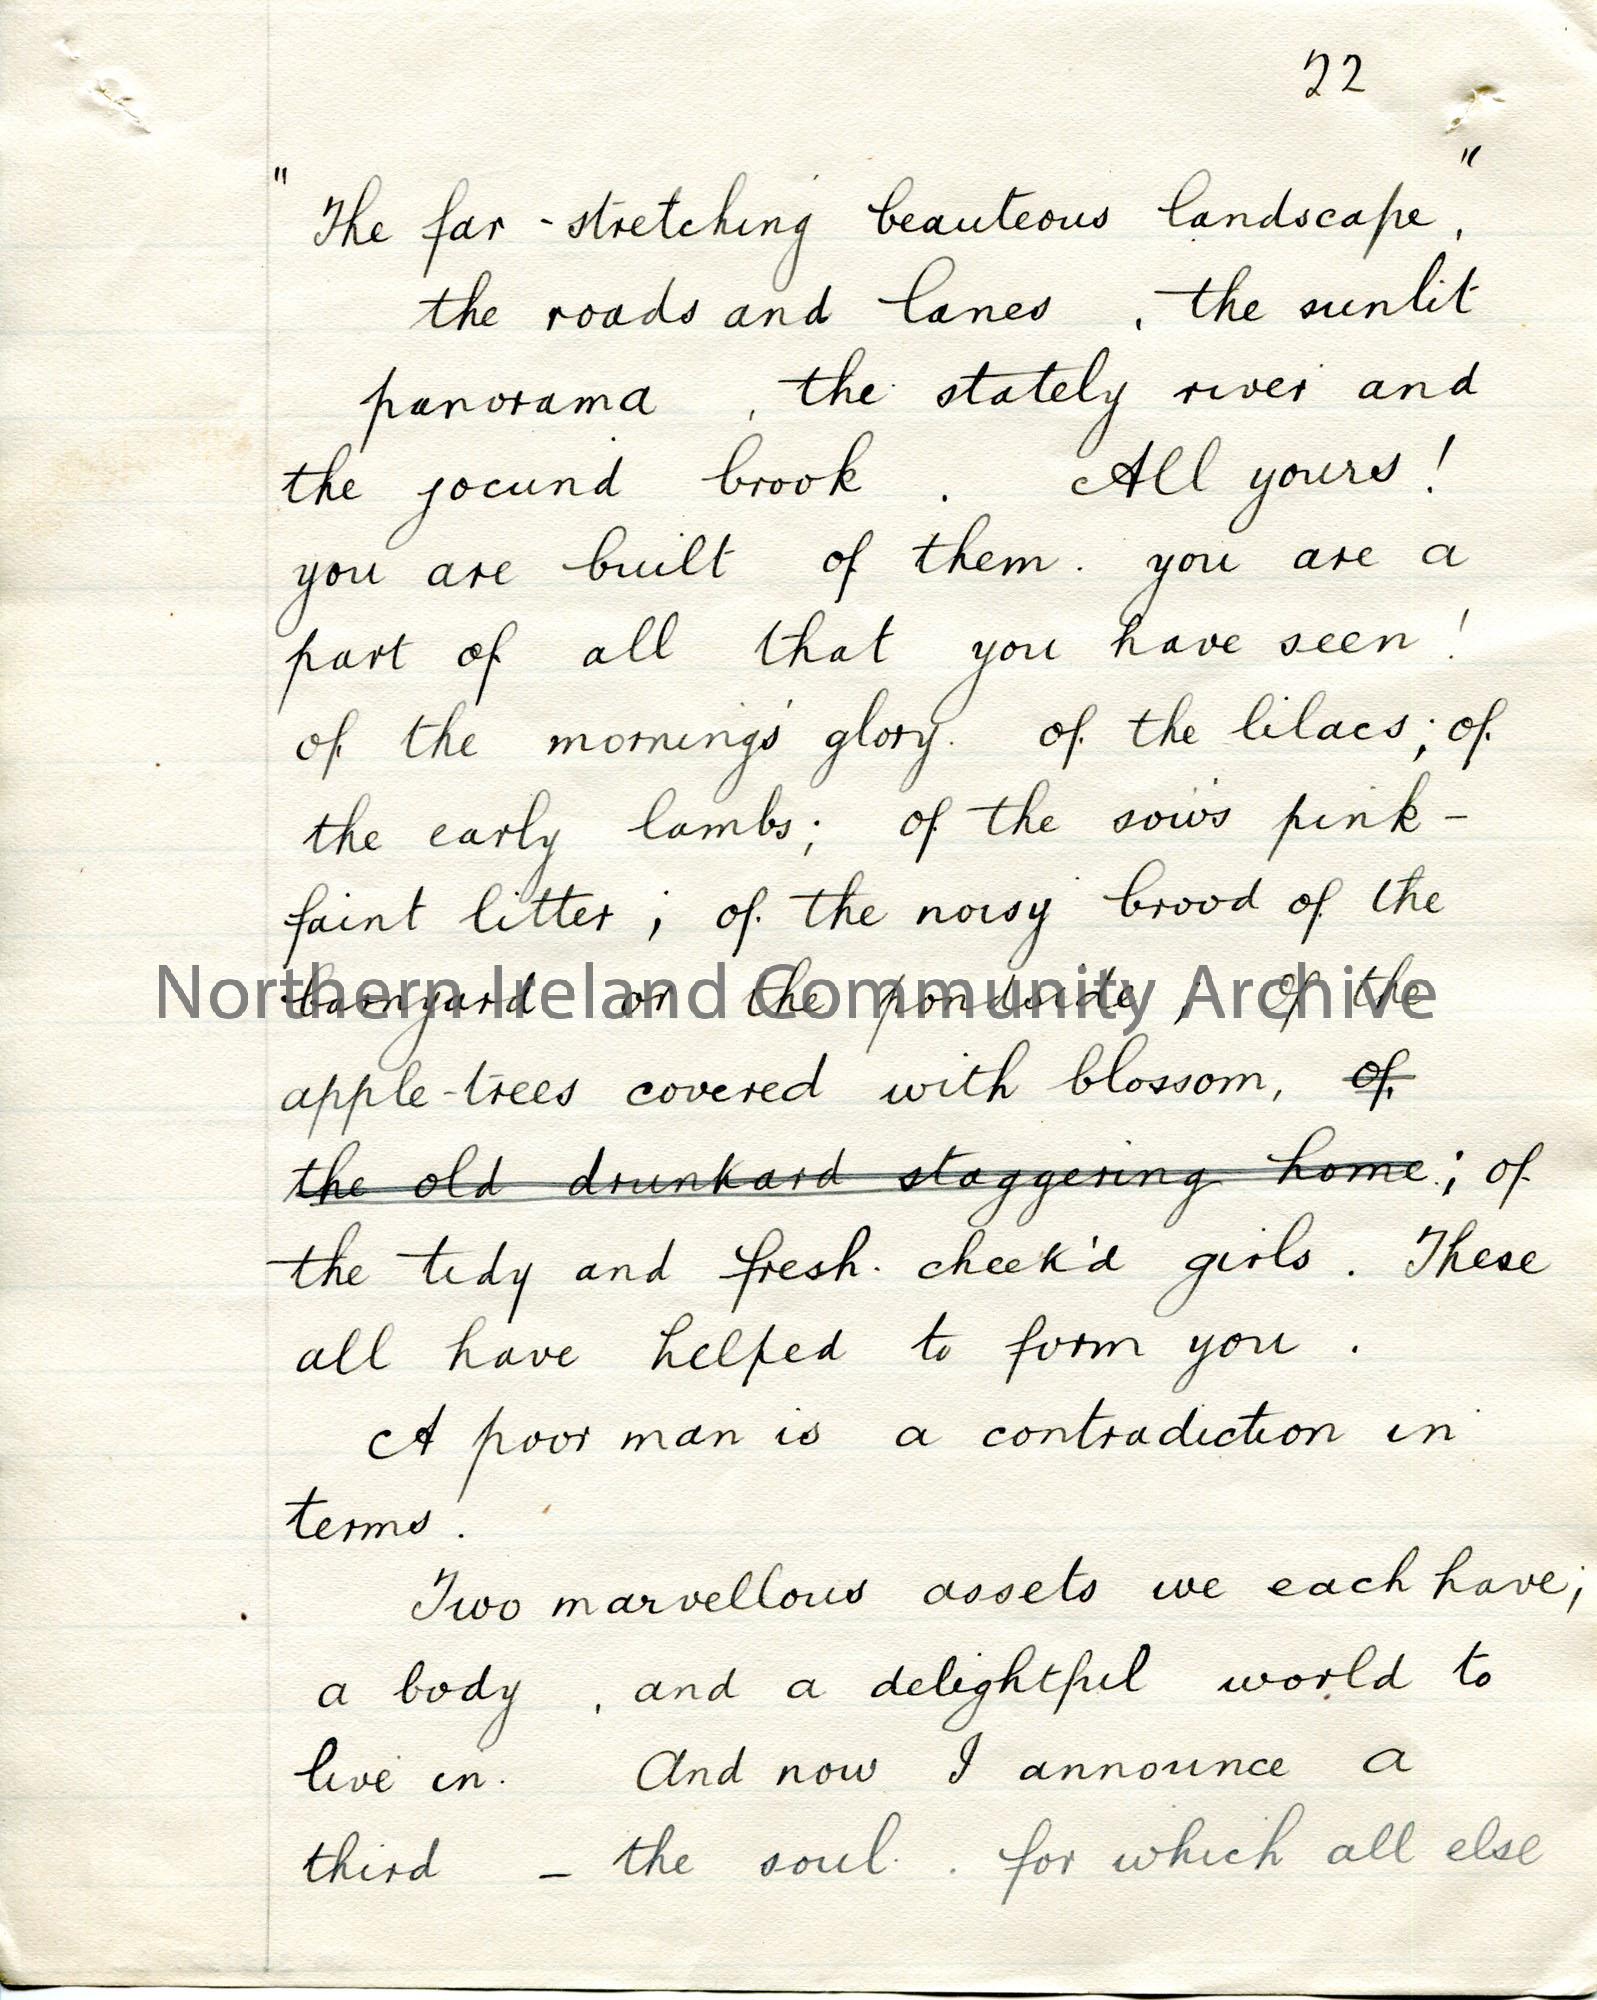 22
"The far-stretching beauteous landscape,"
the roads and lanes, the sunlit
panorama, the stately river and
the jocund brook. All yours!
you are built of them. you are a
part of all that you have seen!
of the morning's glory. of the lilacs; of
the early lambs; of the sow's pink-
faint litter; of the noisy brood of the
barnyard or the pondside; of the
Northern Ireland Community Archive
apple-trees covered with blossom, of
the old drunkard staggering home; of
the tidy and fresh-cheek'd girls. These
all have helped to form you.
A poor man is a contradiction in
terms.
Two marvellous assets we each have;
a body, and a delightful world to
live in. And now I announce a
third - the soul. for which all else